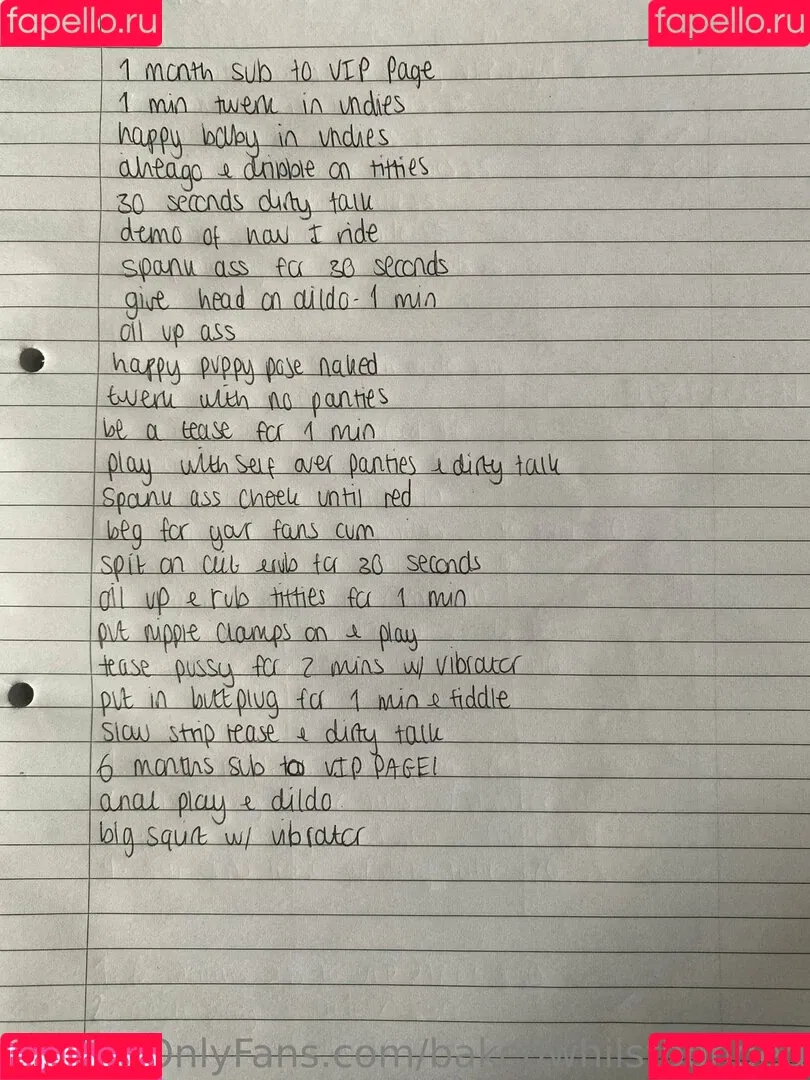 fapello.ru fapello.ru
1 month sub to VIP Page
1 min twerk in undies
happy baby in undies
aheago & dribble on titties
30 seconds dirty talk
demo of how I ride
spank ass for 30 seconds
give head on dildo - 1 min
oil up ass
happy puppy pose naked
twerk with no panties
be a tease for 1 min
play with self over panties & dirty talk
spank ass cheek until red
beg for your fans cum
spit on clit & rub for 30 seconds
oil up & rub titties for 1 min
put nipple clamps on & play
tease pussy for 2 mins w/ vibrator
put in buttplug for 1 min & fiddle
slow strip tease & dirty talk
6 months sub to VIP PAGE!
anal play & dildo
big squirt w/ vibrator
fapello.ru OnlyFans.com/ fapello.ru